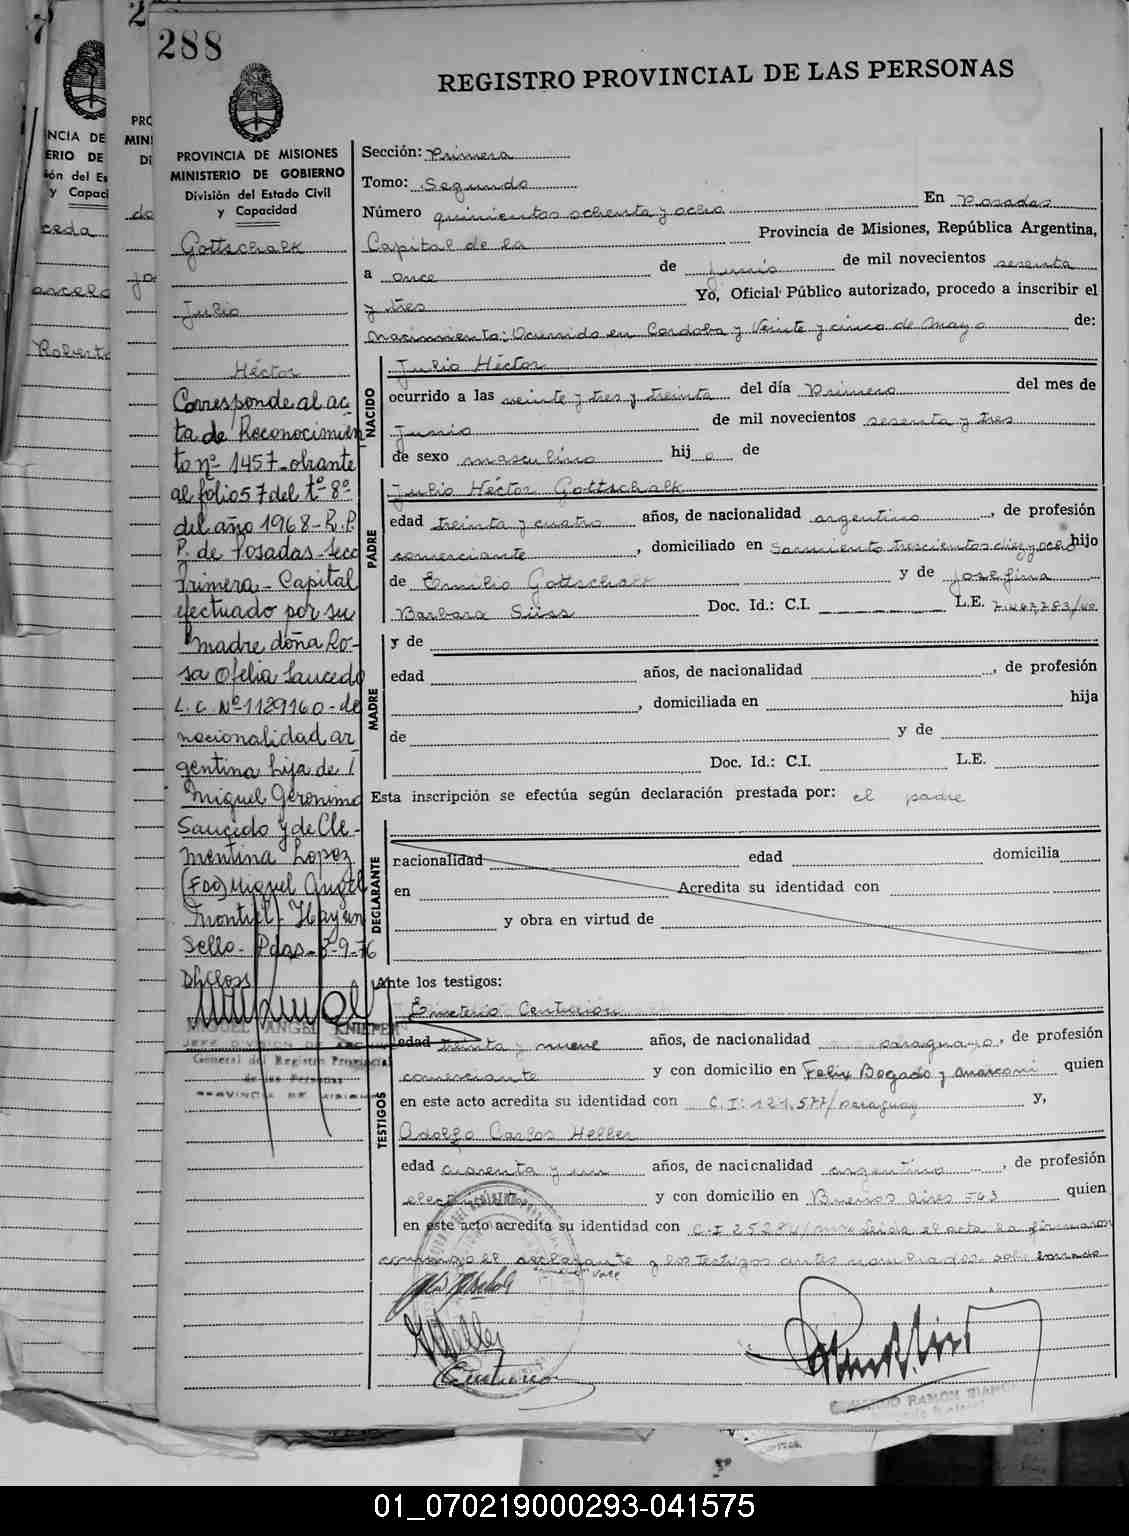 288
REGISTRO PROVINCIAL DE LAS PERSONAS
PROVINCIA DE MISIONES
MINISTERIO DE GOBIERNO
División del Estado Civil
y Capacidad
Gottschalk
Julio
Héctor
Corresponde al ac
ta de Reconocimien
to nº 1457-obrante
al folio 57 del tº 8º
del año 1968-R.P.
P. de Posadas-Secc
Primera-Capital
efectuado por su
madre doña Ro-
sa Ofelia Saucedo
L.C. Nº 1129160-de
nacionalidad ar
gentina hija de
Miguel Geronimo
Saucedo y de Cle-
mentina Lopez
(Fdo) Miguel Angel
Montiel. Hay un
Sello- Pdas-3-9-76
MIGUEL ANGEL KNIEPER
JEFE DIVISION DE ARCHIVO
General del Registro Provincial
de las Personas
PROVINCIA DE MISIONES
Sección: Primera
Tomo: Segundo
Número quinientos ochenta y ocho En Posadas
Capital de la Provincia de Misiones, República Argentina,
a once de junio de mil novecientos sesenta
y tres Yo, Oficial Público autorizado, procedo a inscribir el
nacimiento: Ocurrido en Cordoba y Veinte y cinco de Mayo de:
NACIDO
Julio Héctor
ocurrido a las veinte y tres y treinta del día Primero del mes de
Junio de mil novecientos sesenta y tres
de sexo masculino hij o de
PADRE
Julio Héctor Gottschalk
edad treinta y cuatro años, de nacionalidad argentino, de profesión
comerciante, domiciliado en Sarmiento trescientos diez y ocho hijo
de Emilio Gottschalk y de Josefina
Barbara Süss Doc. Id.: C.I. L.E. 7.467.283/40
MADRE
y de
edad años, de nacionalidad, de profesión
, domiciliada en hija
de y de
Doc. Id.: C.I. L.E.
Esta inscripción se efectúa según declaración prestada por: el padre
DECLARANTE
nacionalidad edad domicilia
en Acredita su identidad con
y obra en virtud de
Ante los testigos:
TESTIGOS
Emeterio Centurion
edad treinta y nueve años, de nacionalidad paraguayo, de profesión
comerciante y con domicilio en Felix Bogado y Marconi quien
en este acto acredita su identidad con C.I: 121.577/paraguay y,
Adolfo Carlos Heller
edad cuarenta y un años, de nacionalidad argentino, de profesión
electricista y con domicilio en Buenos Aires 563 quien
en este acto acredita su identidad con C.I 25284/mnes Leida el acta la firmaron
conmigo el declarante y los testigos antes nombrados sobe borrado
vale
Heller
Centurion
RAMON
01_070219000293-041575